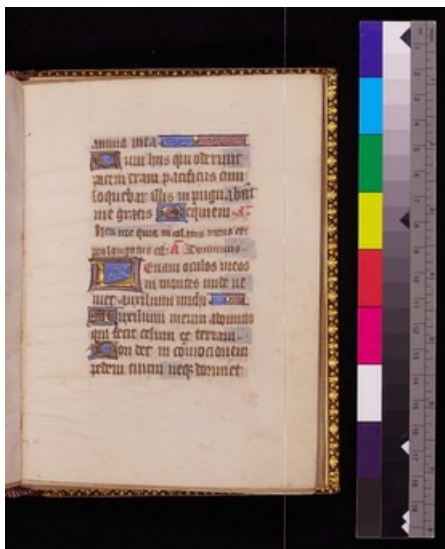 anima mea
Cum hiis qui oderunt
pacem eram pacificus cum
loquebar illis impugnabāt
me gratis Requiem A
Heu me quia incolatus meus
prolongatus est A Dominus
Leuaui oculos meos
in montes unde ue
niet auxilium michi
Auxilium meum a domino
qui fecit celum et terram
Non det in cōmocionem
pedem tuum neq; dormiet